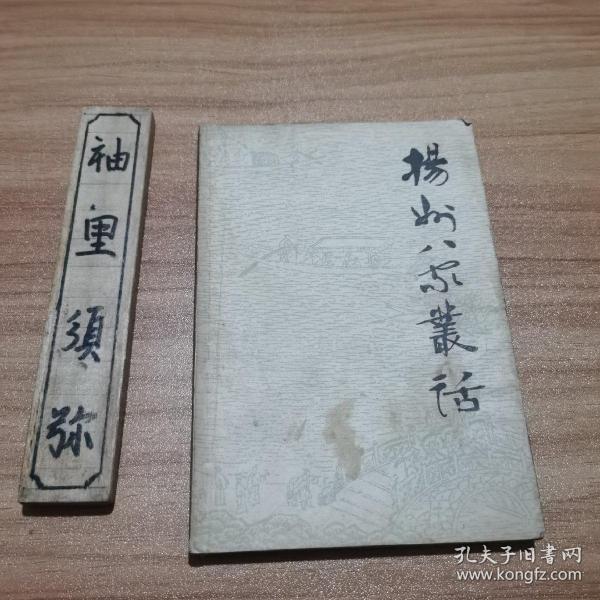 袖里须弥
揚州八家叢話
孔夫子旧書网
www.kongfz.com